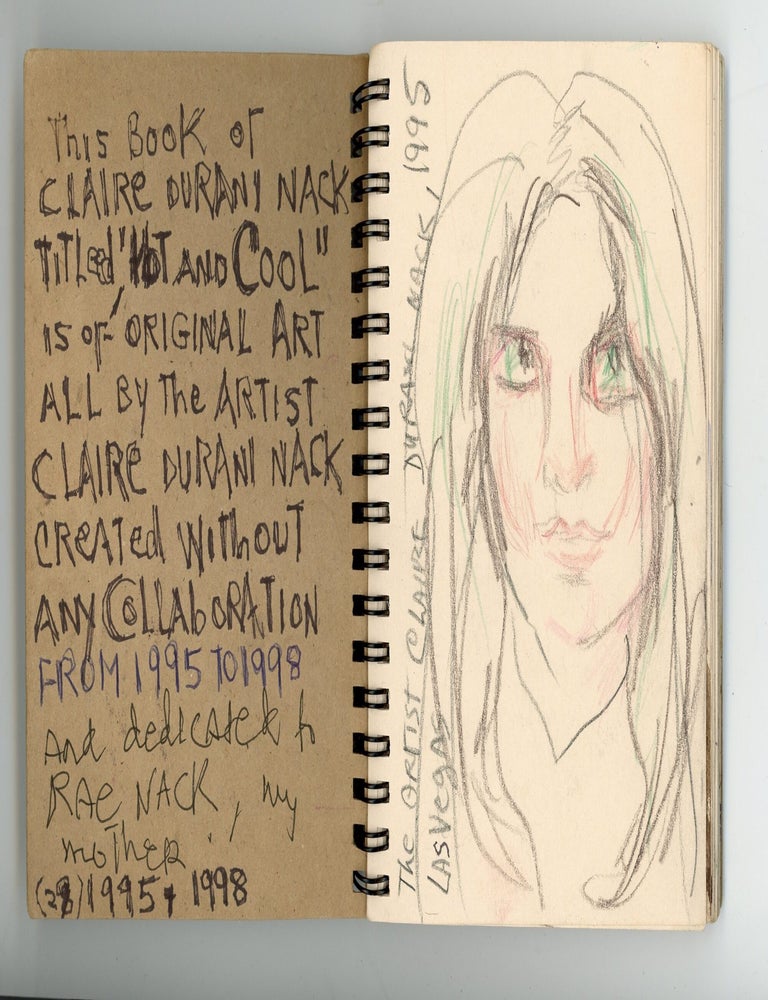 This BOOK OF
CLAIRE DURANI NACK
TITLed "HOT AND COOL"
is of ORIGINAL ART
ALL By The ARTIST
CLAIRE DURANI NACK
CREATed WIThOUT
ANY COLLAbORATION
FROM 1995 TO 1998
And dedicated to
RAE NACK, my
moTheR.
(28) 1995 + 1998
The ARTIST CLAIRE DURANI NACK, 1995
LAS VegAS